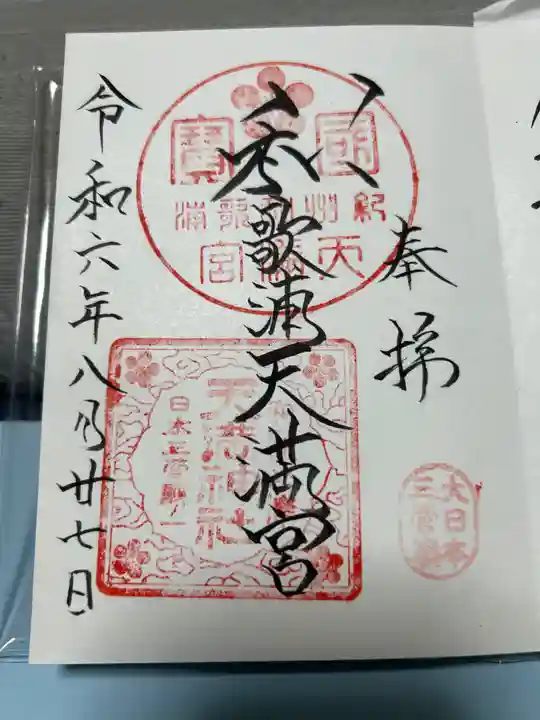 奉拝
和歌浦天満宮
令和六年八月廿七日
國寶
紀州和歌浦
天満宮
天満神社
日本三菅廟一
大日本
三菅廟